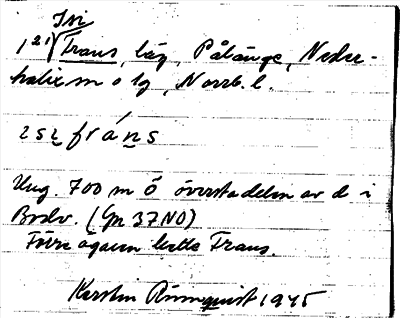 Isi
12) Frans, läg, Pålänge, Neder-
kalix sn o lg, Norrb. l.
isifráns
Ung. 700 m Ö överstadelen av d i
Brdv. (Gn 37 NO)
Förre ägaren hette Frans.
Kerstin Rönnquist 1945